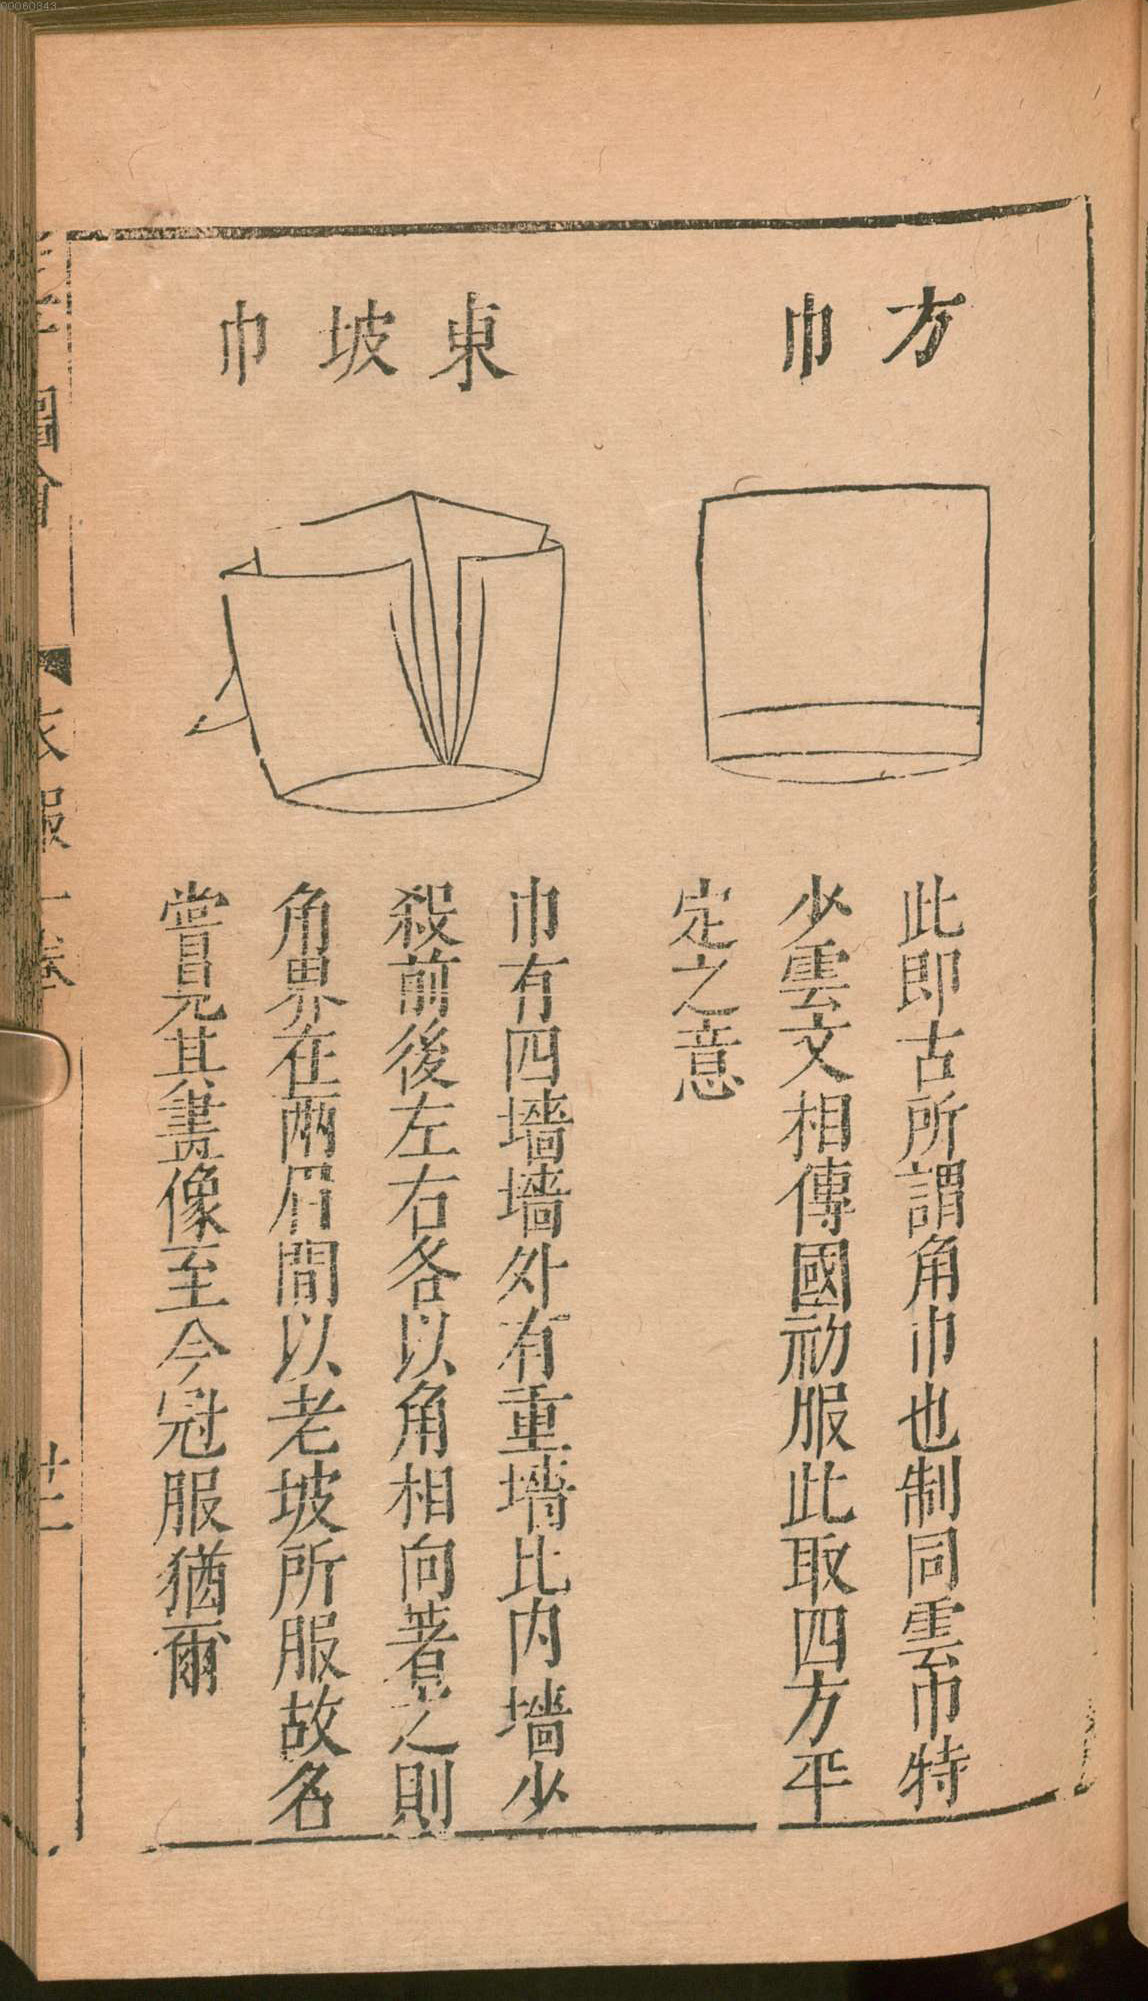 00060343
方巾
此即古所謂角巾也制同雲巾特
少雲文相傳國初服此取四方平
定之意
東坡巾
巾有四墻墻外有重墻比内墻少
殺前後左右各以角相向著之則
角界在兩眉間以老坡所服故名
嘗見其畫像至今冠服猶爾
圖會
衣服一卷
廿二